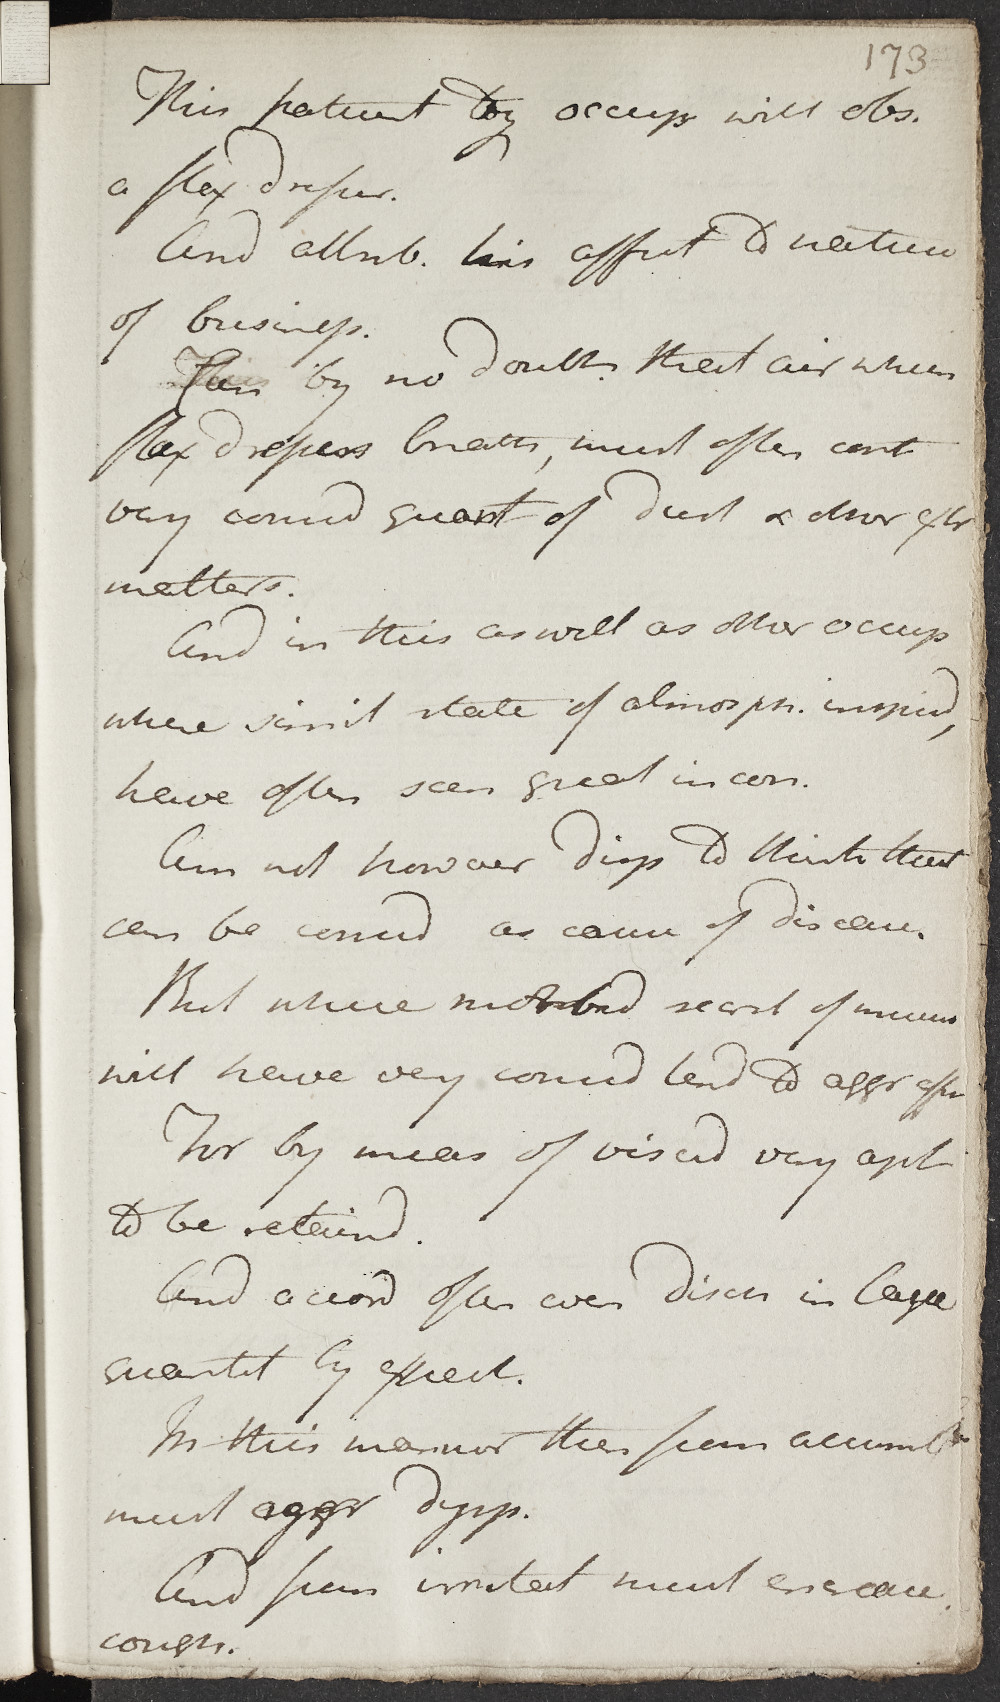 173
This patient by occup will obs.
a flax dresser.
And attrib. his affect to nature
of business.
This by no doubt. that air when
flax dressers breath, must often cont
very consid quant of dust & other extr
matters.
And in this as well as other occup
where simil state of atmosph. inspird,
have often seen great incon.
Am not however disp to think that
can be consid as cause of disease.
But where morbid secret of mucus
will have very consid tend to aggr affec
For by means of viscid very apt
to be retaind.
And accord often even disch in large
quantit by expect.
In this manner then from accumul
must aggr dysp.
And from irritat must encrease
cough.